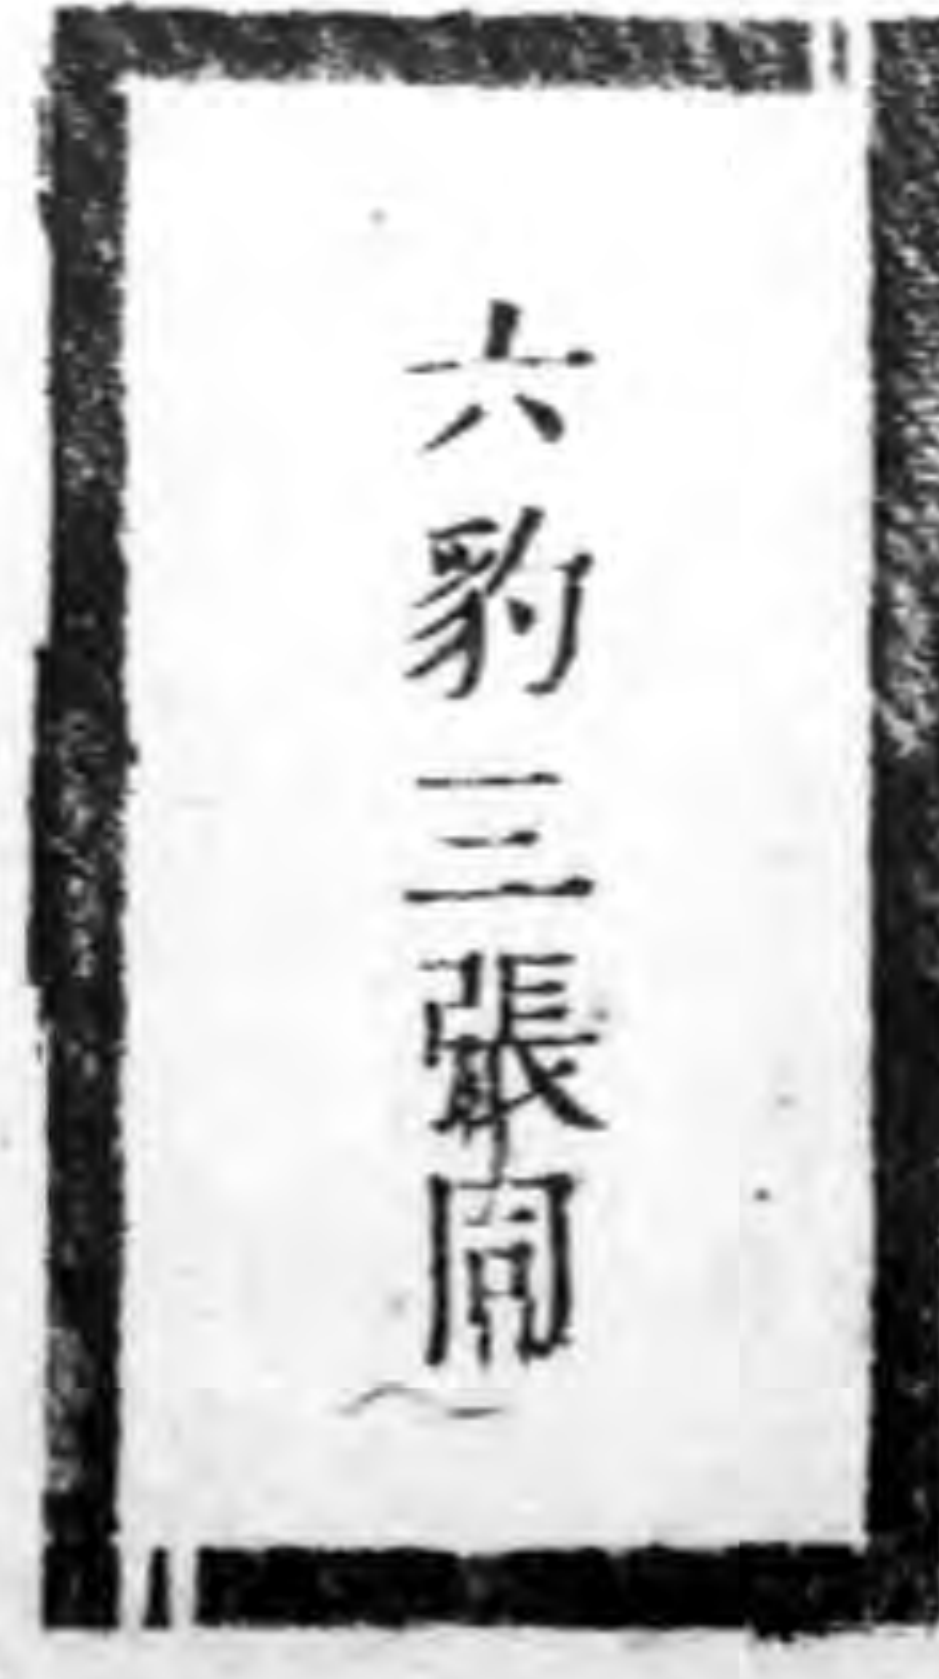 六豹三張同